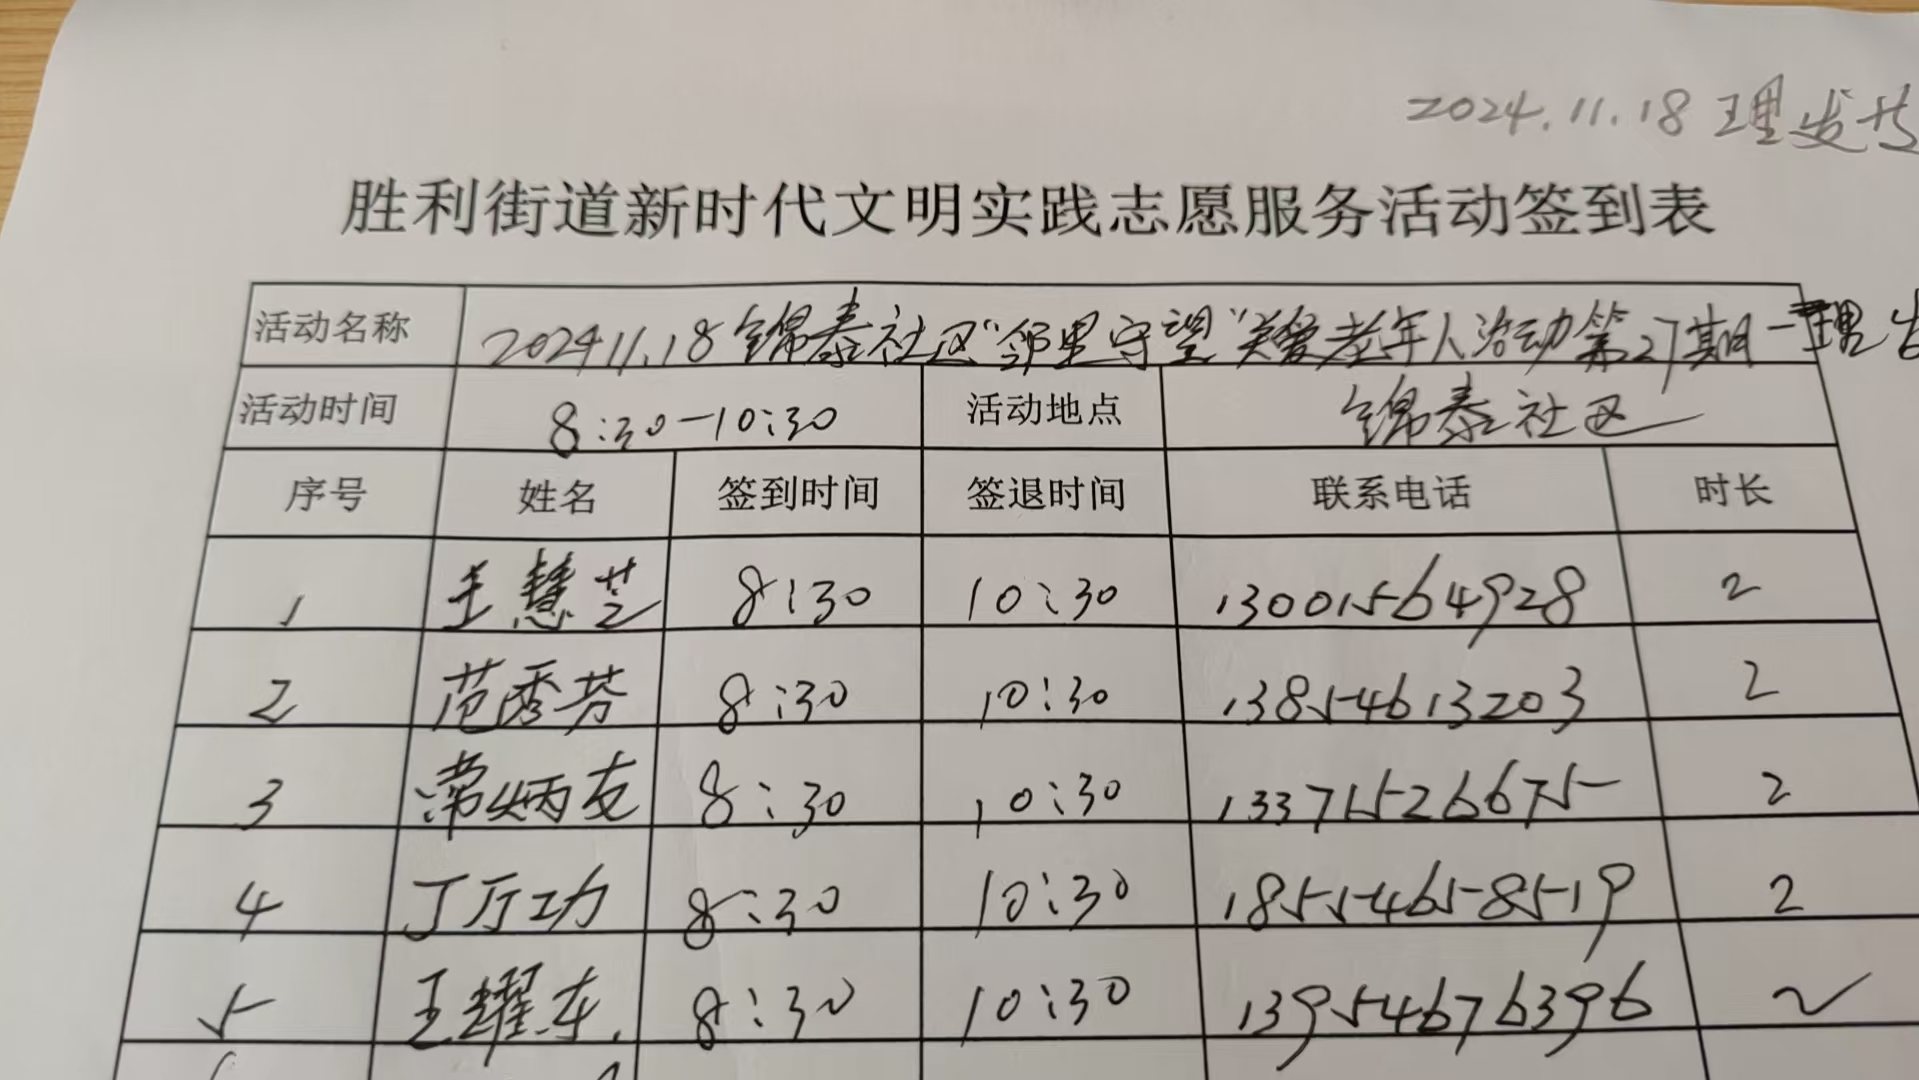 2024.11.18 理发
胜利街道新时代文明实践志愿服务活动签到表
活动名称 2024 11.18 锦泰社区“邻里守望”关爱老年人活动第27期一理
活动时间 8:30-10:30 活动地点 锦泰社区
序号 姓名 签到时间 签退时间 联系电话 时长
1 王慧芝 8:30 10:30 13001564928 2
2 范秀芬 8:30 10:30 13854613203 2
3 常炳友 8:30 10:30 13371526675 2
4 丁厅功 8:30 10:30 18554658519 2
5 王耀东 8:30 10:30 13954676396 2